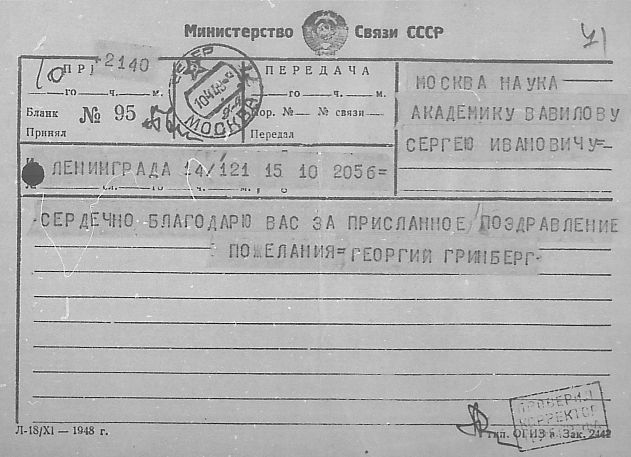 Министерство Связи СССР
41
2140
ПЕРЕДАЧА
го ч. м.
го ч. м.
Бланк № 95
№ № связи
Принял
Передал
МОСКВА
МОСКВА НАУКА
АКАДЕМИКУ ВАВИЛОВУ
СЕРГЕЮ ИВАНОВИЧУ=
ЛЕНИНГРАДА 14/121 15 10 2056=
СЕРДЕЧНО БЛАГОДАРЮ ВАС ЗА ПРИСЛАННОЕ ПОЗДРАВЛЕНИЕ
ПОЖЕЛАНИЯ=ГЕОРГИЙ ГРИНБЕРГ-
ПРОВЕРИЛ
КОРРЕКТОР
Л-18/XI — 1948 г.
тип. ОГИЗ а. Зак. 2442